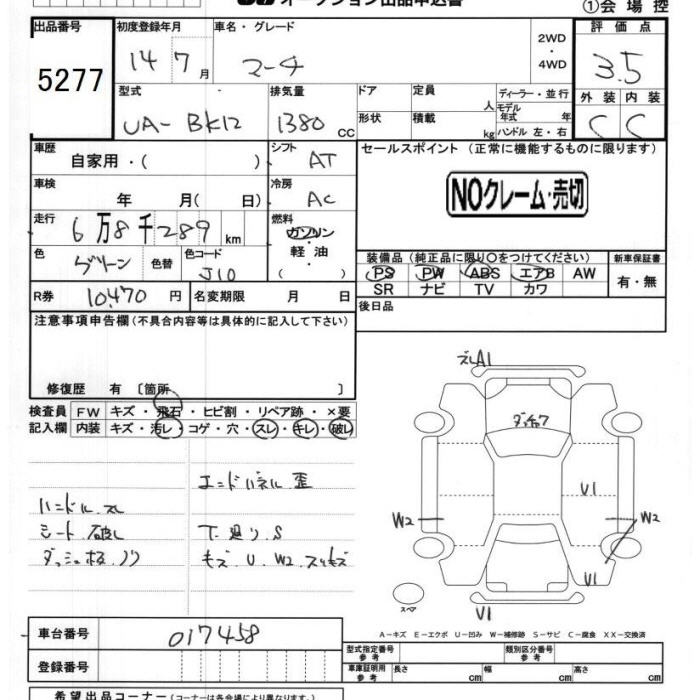 オークション出品申込書
①会場控
出品番号
5277
初度登録年月
14 7月
車名・グレード
マーチ
2WD
・
4WD
評価点
3.5
外装 内装
C C
型式
UA- BK12
排気量
1380 CC
ドア
定員
人
形状
積載
kg
ディーラー・並行
モデル年式 年
ハンドル 左・右
車歴
自家用・( )
シフト
AT
セールスポイント(正常に機能するものに限ります)
NOクレーム・売切
車検
年 月( 日)
冷房
AC
走行
6万8千289 km
燃料
ガソリン
・
軽油
・( )
色
グリーン
色替
色コード
J10
装備品(純正品に限り○をつけてください)
PS PW ABS エアB AW
SR ナビ TV カワ
新車保証書
有・無
R券
10,470 円
名変期限 月 日
後日品
注意事項申告欄(不具合内容等は具体的に記入して下さい)
修復歴 有 〔箇所 〕
検査員
記入欄
FW キズ・飛石・ヒビ割・リペア跡・×要
内装 キズ・汚レ・コゲ・穴・スレ・キレ・破レ
エンドパネル 歪
ハンドル スレ
シート 破レ
下廻り S
ダッシュ板 ノリ
キズ U W2 スリキズ
ズレA1
U1
W2
W2
U1
U1
スペア
A-キズ E-エクボ U-凹み W-補修跡 S-サビ C-腐食 XX-交換済
車台番号
017458
登録番号
型式指定番号
類別区分番号
車庫証明用
参考
長さ cm
幅 cm
高さ cm
希望出品コーナー(コーナーは各会場により異なります)